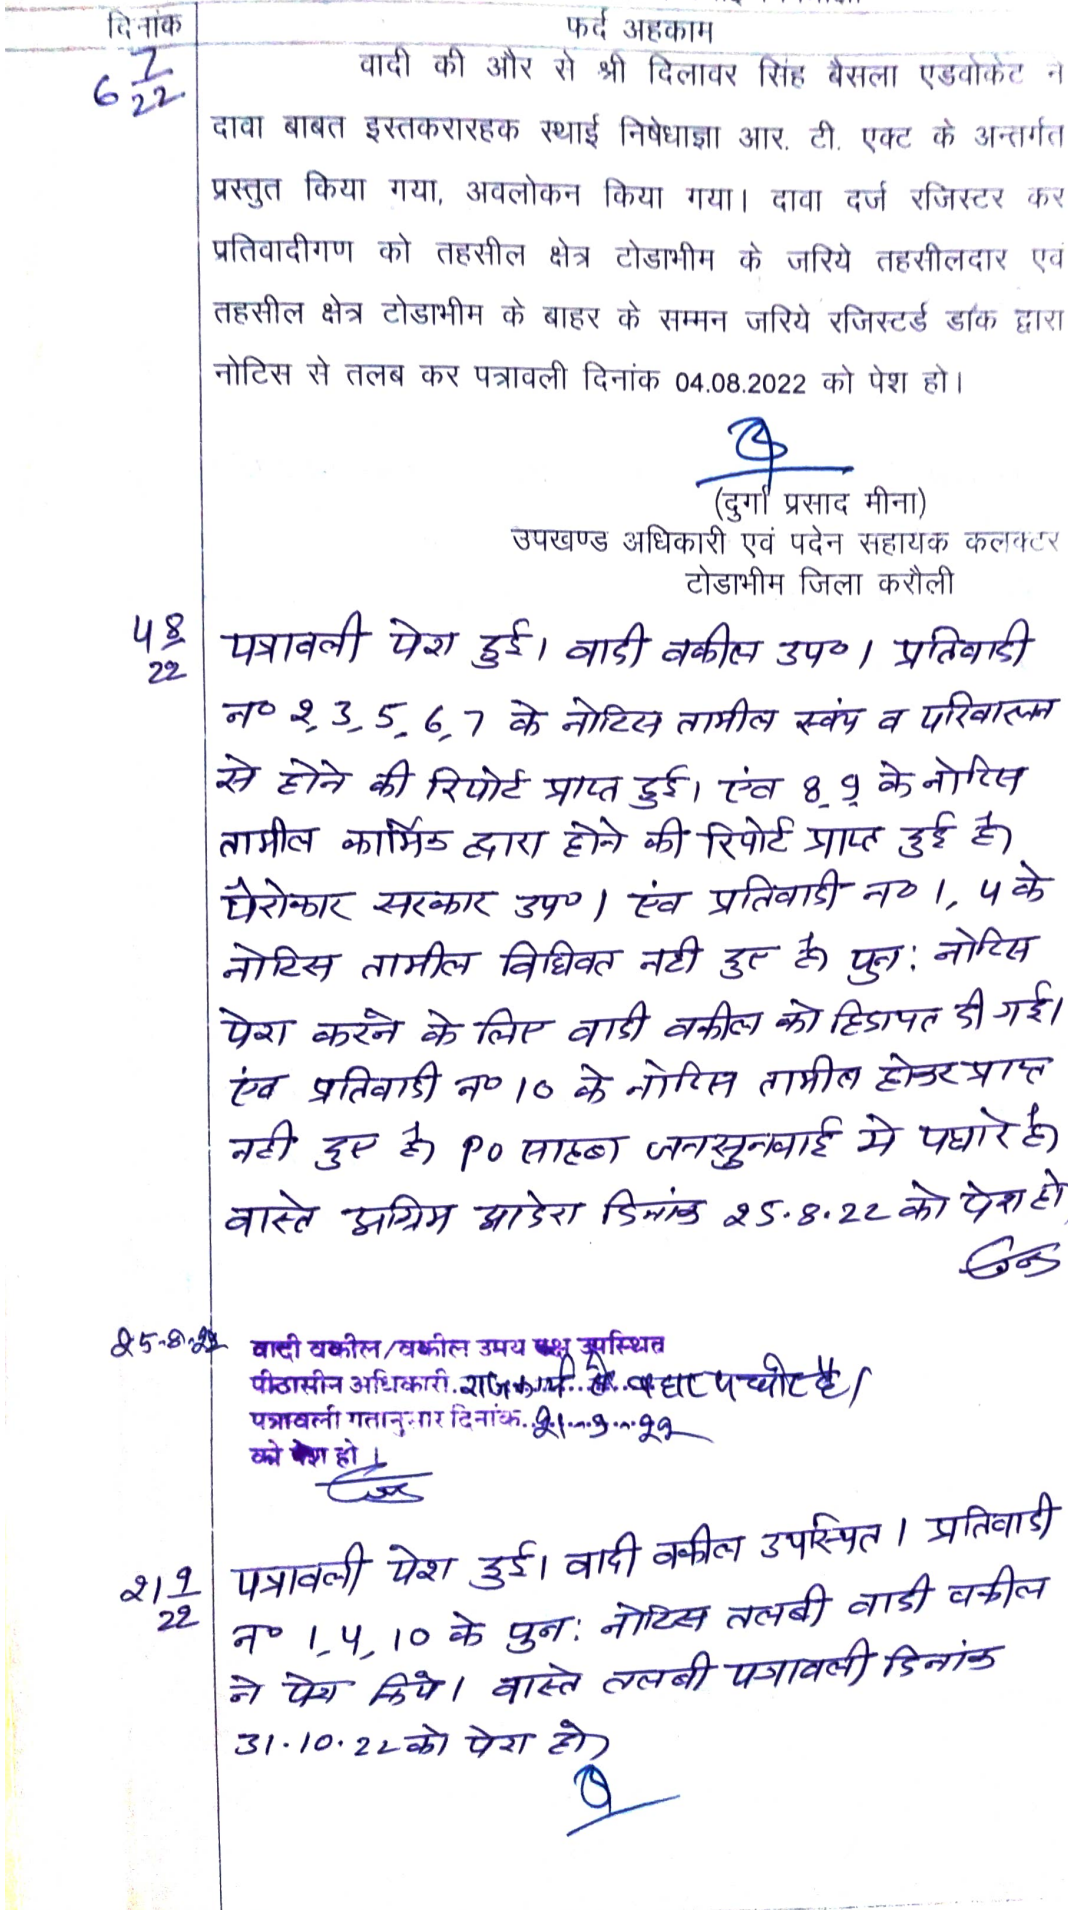 दिनांक
फर्द अहकाम
6 7/22
वादी की और से श्री दिलावर सिंह बैसला एडवोकेट ने
दावा बाबत इस्तकरारहक स्थाई निषेधाज्ञा आर. टी. एक्ट के अन्तर्गत
प्रस्तुत किया गया, अवलोकन किया गया। दावा दर्ज रजिस्टर कर
प्रतिवादीगण को तहसील क्षेत्र टोडाभीम के जरिये तहसीलदार एवं
तहसील क्षेत्र टोडाभीम के बाहर के सम्मन जरिये रजिस्टर्ड डॉक द्वारा
नोटिस से तलब कर पत्रावली दिनांक 04.08.2022 को पेश हो।
(दुर्गा प्रसाद मीना)
उपखण्ड अधिकारी एवं पदेन सहायक कलक्टर
टोडाभीम जिला करौली
4 8/22
पत्रावली पेश हुई। वादी वकील उप०। प्रतिवादी
न० 2, 3, 5, 6, 7 के नोटिस तामील स्वंय व परिवारजन
से होने की रिपोर्ट प्राप्त हुई। एंव 8, 9 के नोटिस
तामील कार्मिक द्वारा होने की रिपोर्ट प्राप्त हुई है।
पैरोकार सरकार उप०। एंव प्रतिवादी न० 1, 4 के
नोटिस तामील विधिवत नही हुए है। पुन: नोटिस
पेश करने के लिए वादी वकील को हिदायत दी गई।
एंव प्रतिवादी न० 10 के नोटिस तामील होकर प्राप्त
नही हुए है। PO साहब जनसुनवाई मे पधारे है।
वास्ते अग्रिम आदेश दिनांक 25.8.22 को पेश हो
25-8-22
वादी वकील/वकील उभय पक्ष उपस्थित
पीठासीन अधिकारी. राजकार्य से बाहर पधारे है।
पत्रावली गतानुसार दिनांक. 21-9-22
को पेश हो।
21 9/22
पत्रावली पेश हुई। वादी वकील उपस्थित। प्रतिवादी
न० 1, 4, 10 के पुन: नोटिस तलबी वादी वकील
ने पेश किये। वास्ते तलबी पत्रावली दिनांक
31.10.22 को पेश हो।